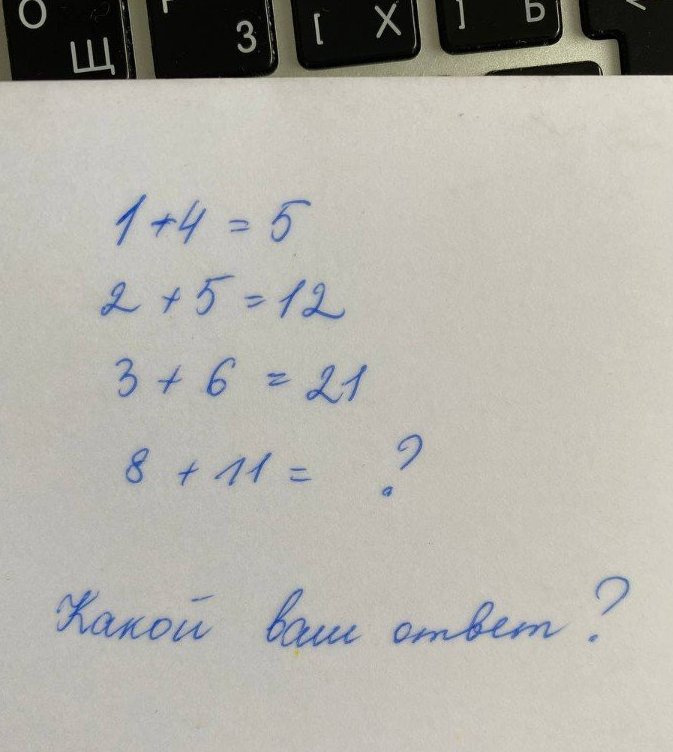 О Г [ Х ] Ъ
Щ З
1+4 = 5
2 + 5 = 12
3 + 6 = 21
8 + 11 = ?
Какой ваш ответ?